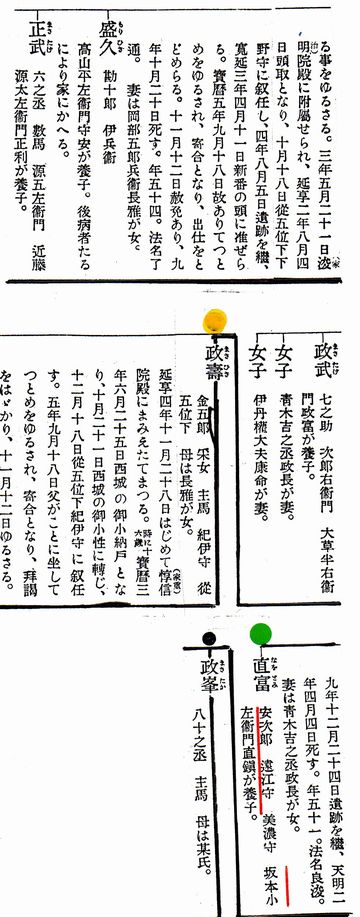 る事をゆるさる。三年五月二十一日浚(家治)
明院殿に附屬せられ、延享二年八月四
日頭取となり、十月十八日從五位下下
野守に叙任し、四年八月五日遺跡を繼、
寬延三年四月十一日新番の頭に准ぜら
る。寶曆五年九月十八日故ありてつと
めをゆるされ、寄合となり、出仕をと
どめらる。十一月十二日赦免あり、九
年十月二十日死す。年五十四。法名了
通。 妻は岡部五郎兵衞長雅が女。
盛久 もりひさ
勘十郎 伊兵衞
高山平左衞門守安が養子。後病者たる
により家にかへる。
正武 まさたけ
六之丞 數馬 源五左衞門 近藤
源太左衞門正利が養子。
政武 まさたけ
七之助 次郎右衞門 大草半右衞
門政富が養子。
女子
靑木吉之丞政長が妻。
女子
伊丹權大夫康命が妻。
政壽 まさひさ
金五郎 采女 主馬 紀伊守 從
五位下 母は長雅が女。
延享四年十一月二十八日はじめて惇信(家重)
院殿にまみえたてまつる。時に十六歲 寶曆三
年六月二十五日西城の御小納戶とな
り、十月二十一日西城の御小性に轉じ、
十二月十八日從五位下紀伊守に叙任
す。五年九月十八日父がことに坐して
つとめをゆるされ、寄合となり、拜謁
をはゞかり、十一月十二日ゆるさる。
九年十二月二十四日遺跡を繼、天明二
年四月四日死す。年五十一。法名良浚。
妻は靑木吉之丞政長が女。
直富 なをとみ
安次郎 遠江守 美濃守 坂本小
左衞門直鎭が養子。
政峯 まさたか
八十之丞 主馬 母は某氏。